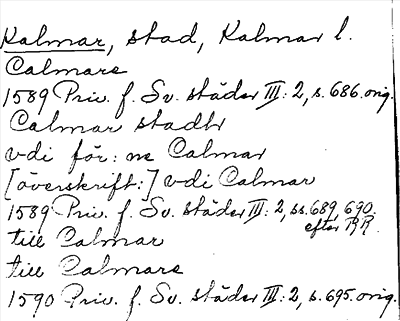 Kalmar, stad, Kalmar l.
Calmare
1589 Priv. f. Sv. städer III: 2, s. 686. orig.
Calmar stadtz
vdi för: ne Calmar
[överskrift:] vdi Calmar
1589 Priv. f. Sv. städer III: 2, ss. 689, 690.
efter RR.
till Calmar
till Calmare
1590 Priv. f. Sv. städer III: 2, s. 695. orig.